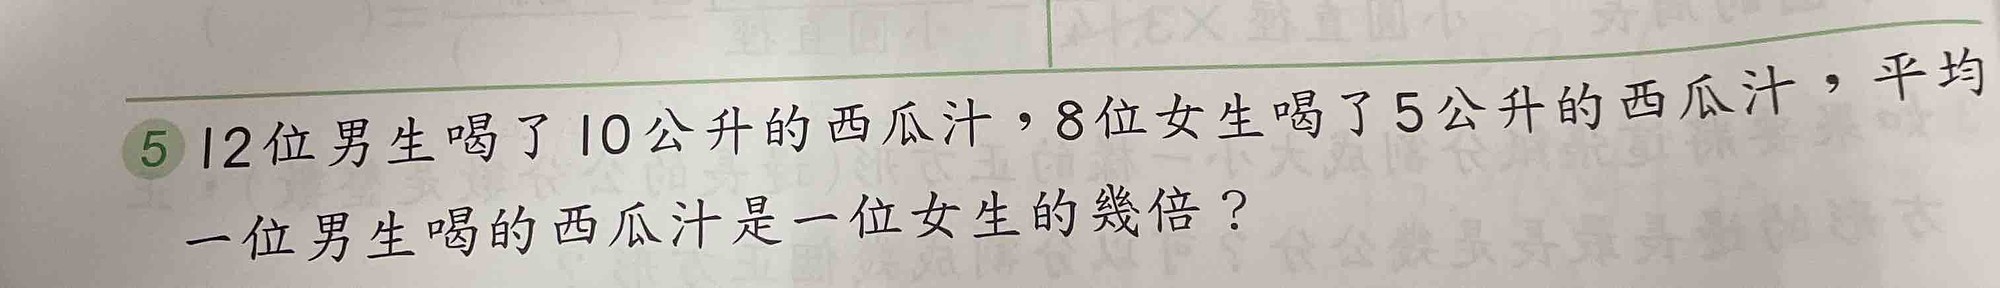 5 12位男生喝了10公升的西瓜汁，8位女生喝了5公升的西瓜汁，平均
一位男生喝的西瓜汁是一位女生的幾倍？